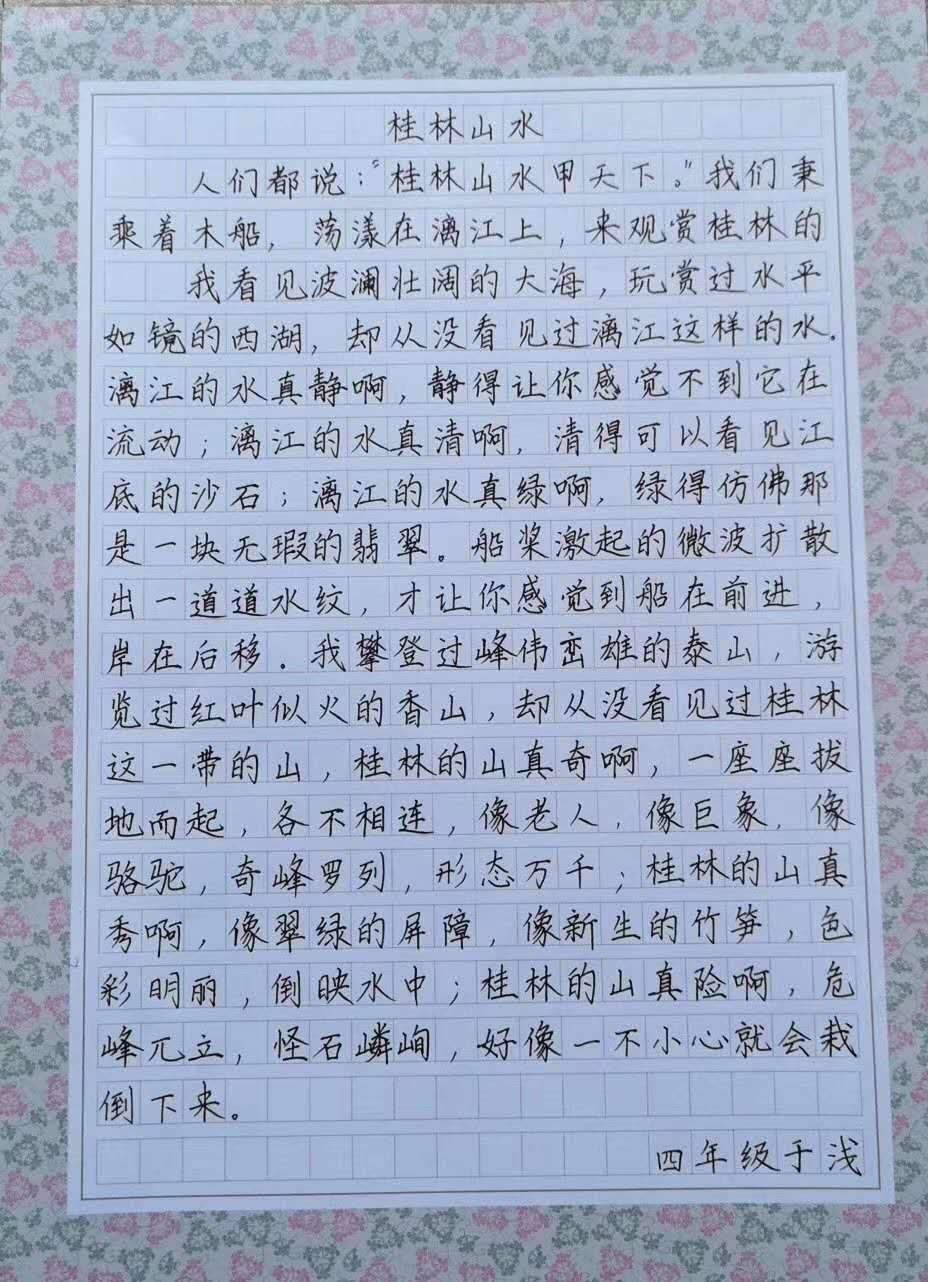 桂林山水
人们都说：“桂林山水甲天下。”我们秉
乘着木船，荡漾在漓江上，来观赏桂林的
我看见波澜壮阔的大海，玩赏过水平
如镜的西湖，却从没看见过漓江这样的水.
漓江的水真静啊，静得让你感觉不到它在
流动；漓江的水真清啊，清得可以看见江
底的沙石；漓江的水真绿啊，绿得仿佛那
是一块无瑕的翡翠。船桨激起的微波扩散
出一道道水纹，才让你感觉到船在前进，
岸在后移.我攀登过峰伟峦雄的泰山，游
览过红叶似火的香山，却从没看见过桂林
这一带的山，桂林的山真奇啊，一座座拔
地而起，各不相连，像老人，像巨象，像
骆驼，奇峰罗列，形态万千；桂林的山真
秀啊，像翠绿的屏障，像新生的竹笋，色
彩明丽，倒映水中；桂林的山真险啊，危
峰兀立，怪石嶙峋，好像一不小心就会栽
倒下来。
四年级于浅